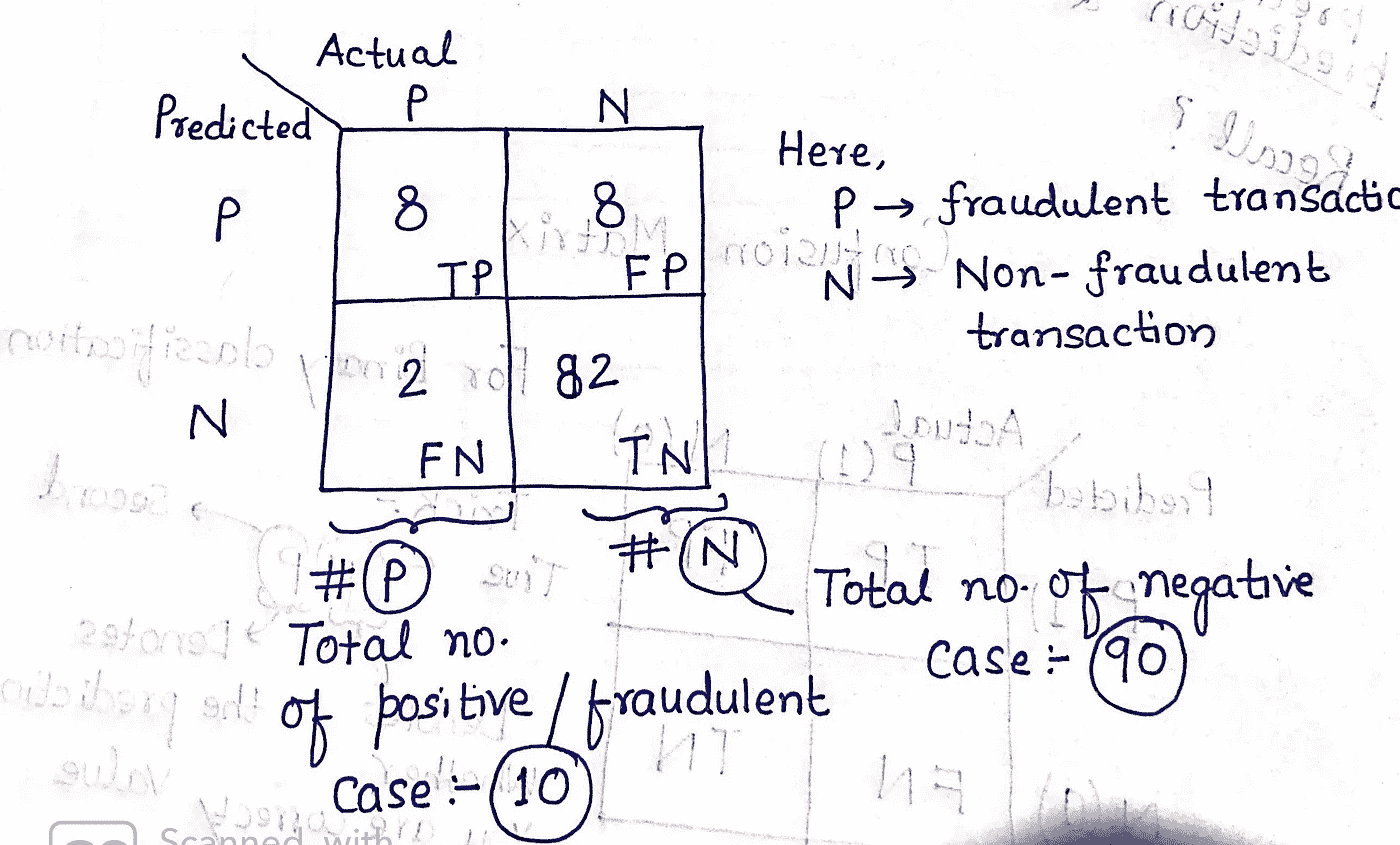 Actual
P N
Predicted
P 8 8
TP FP
N 2 82
FN TN
Here,
P → fraudulent
N → Non-fraudulent
transaction
# P
Total no.
of positive / fraudulent
case :- 10
# N
Total no. of negative
case :- 90
Scanned with